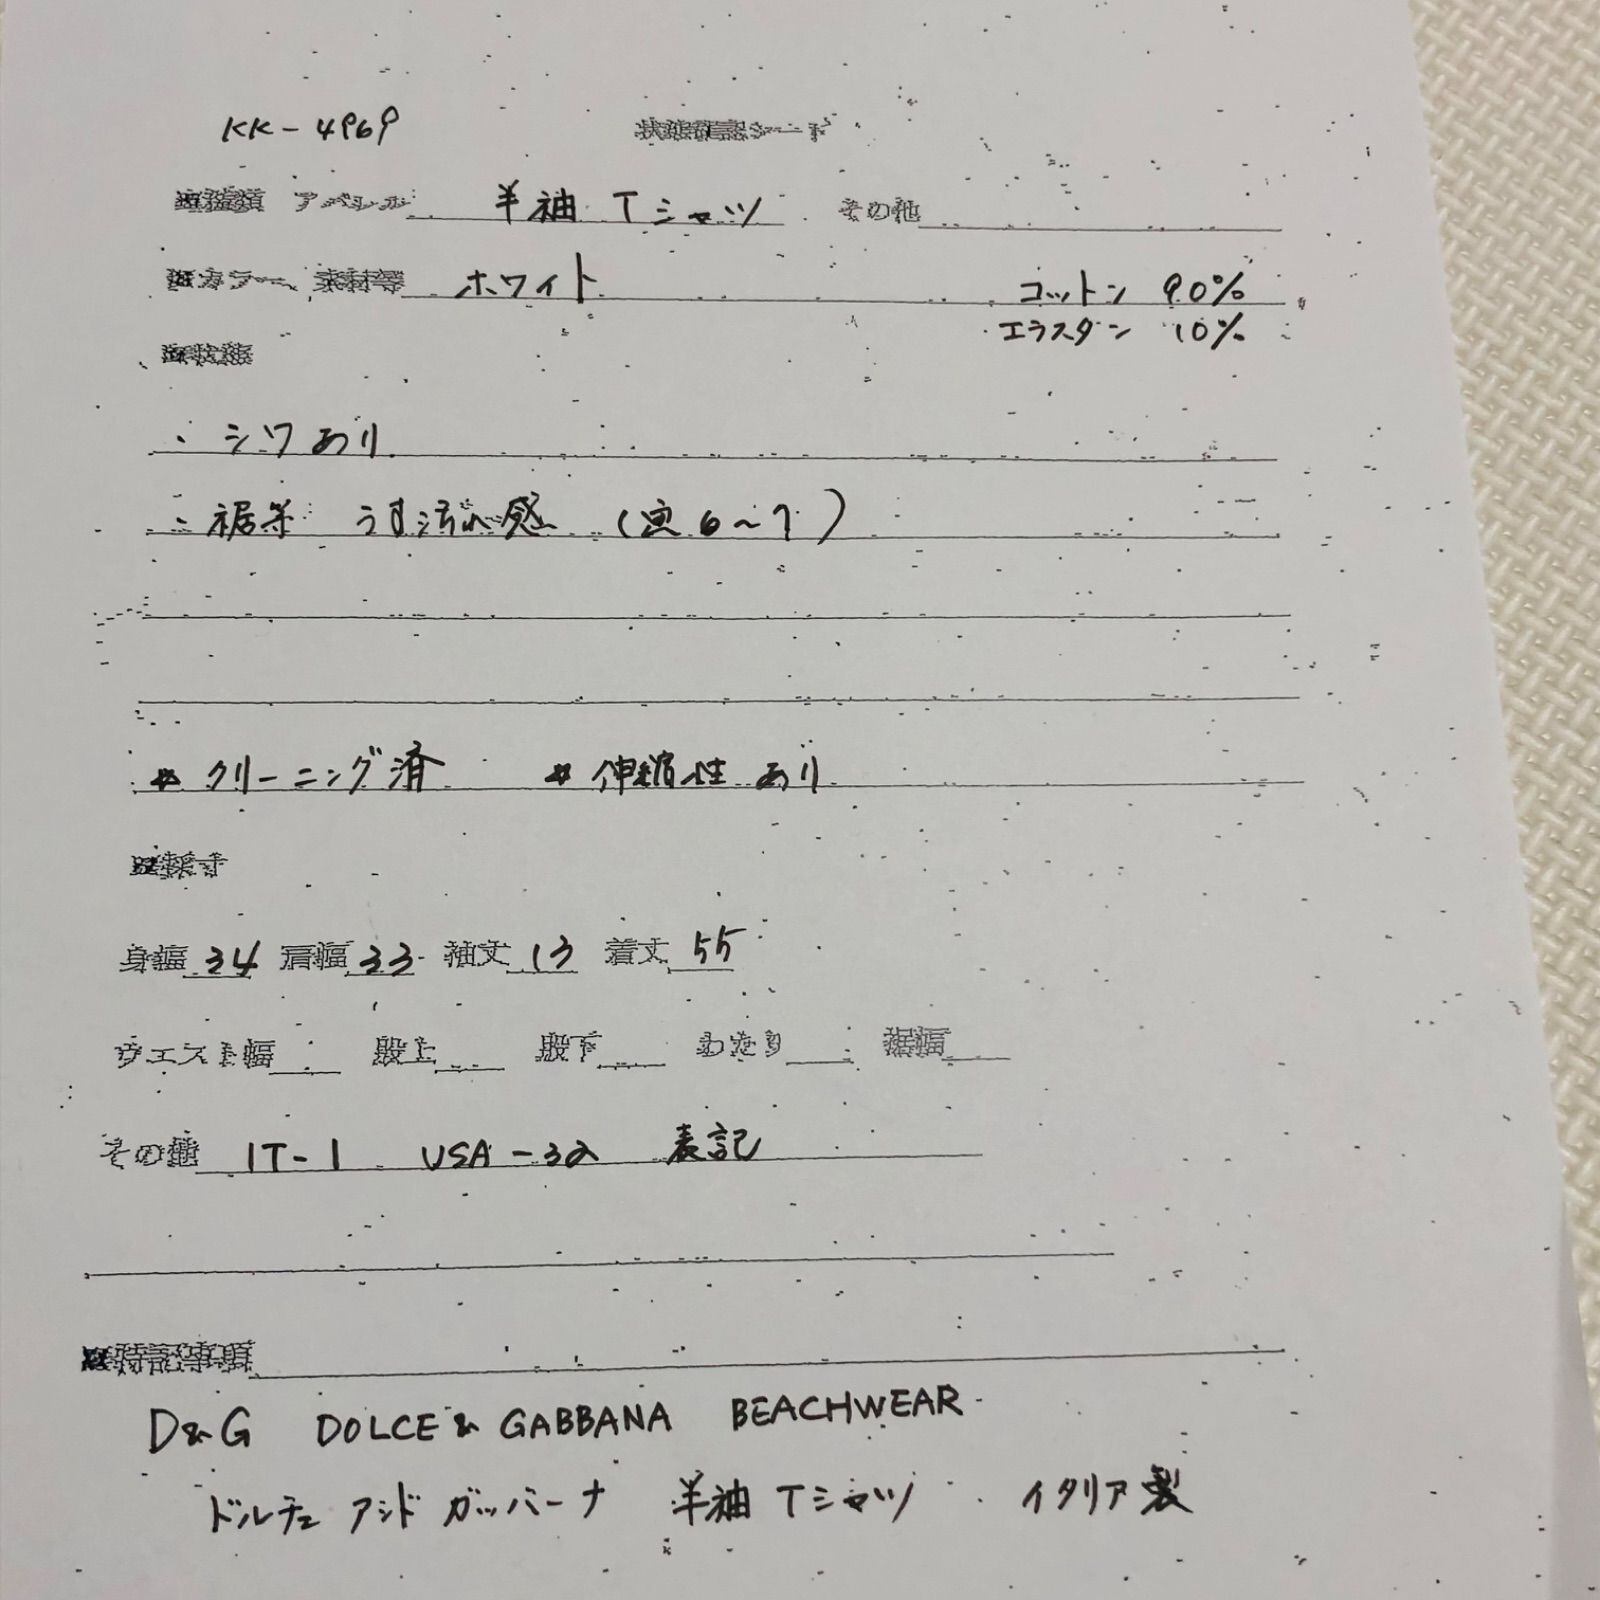 KK-4969 状態確認シート
■種類 アパレル 半袖Tシャツ その他
■カラー、素材等 ホワイト コットン 90%
エラスタン 10%
■状態
・シワあり
・裾等 うす汚れ感 (画6~7)
*クリーニング済 *伸縮性あり
■採寸
身幅 34 肩幅 33 袖丈 13 着丈 55
ウエスト幅 股上 股下 わたり 裾幅
その他 IT-1 USA-32 表記
■特記事項
D&G DOLCE & GABBANA BEACHWEAR
ドルチェアンドガッバーナ 半袖Tシャツ イタリア製